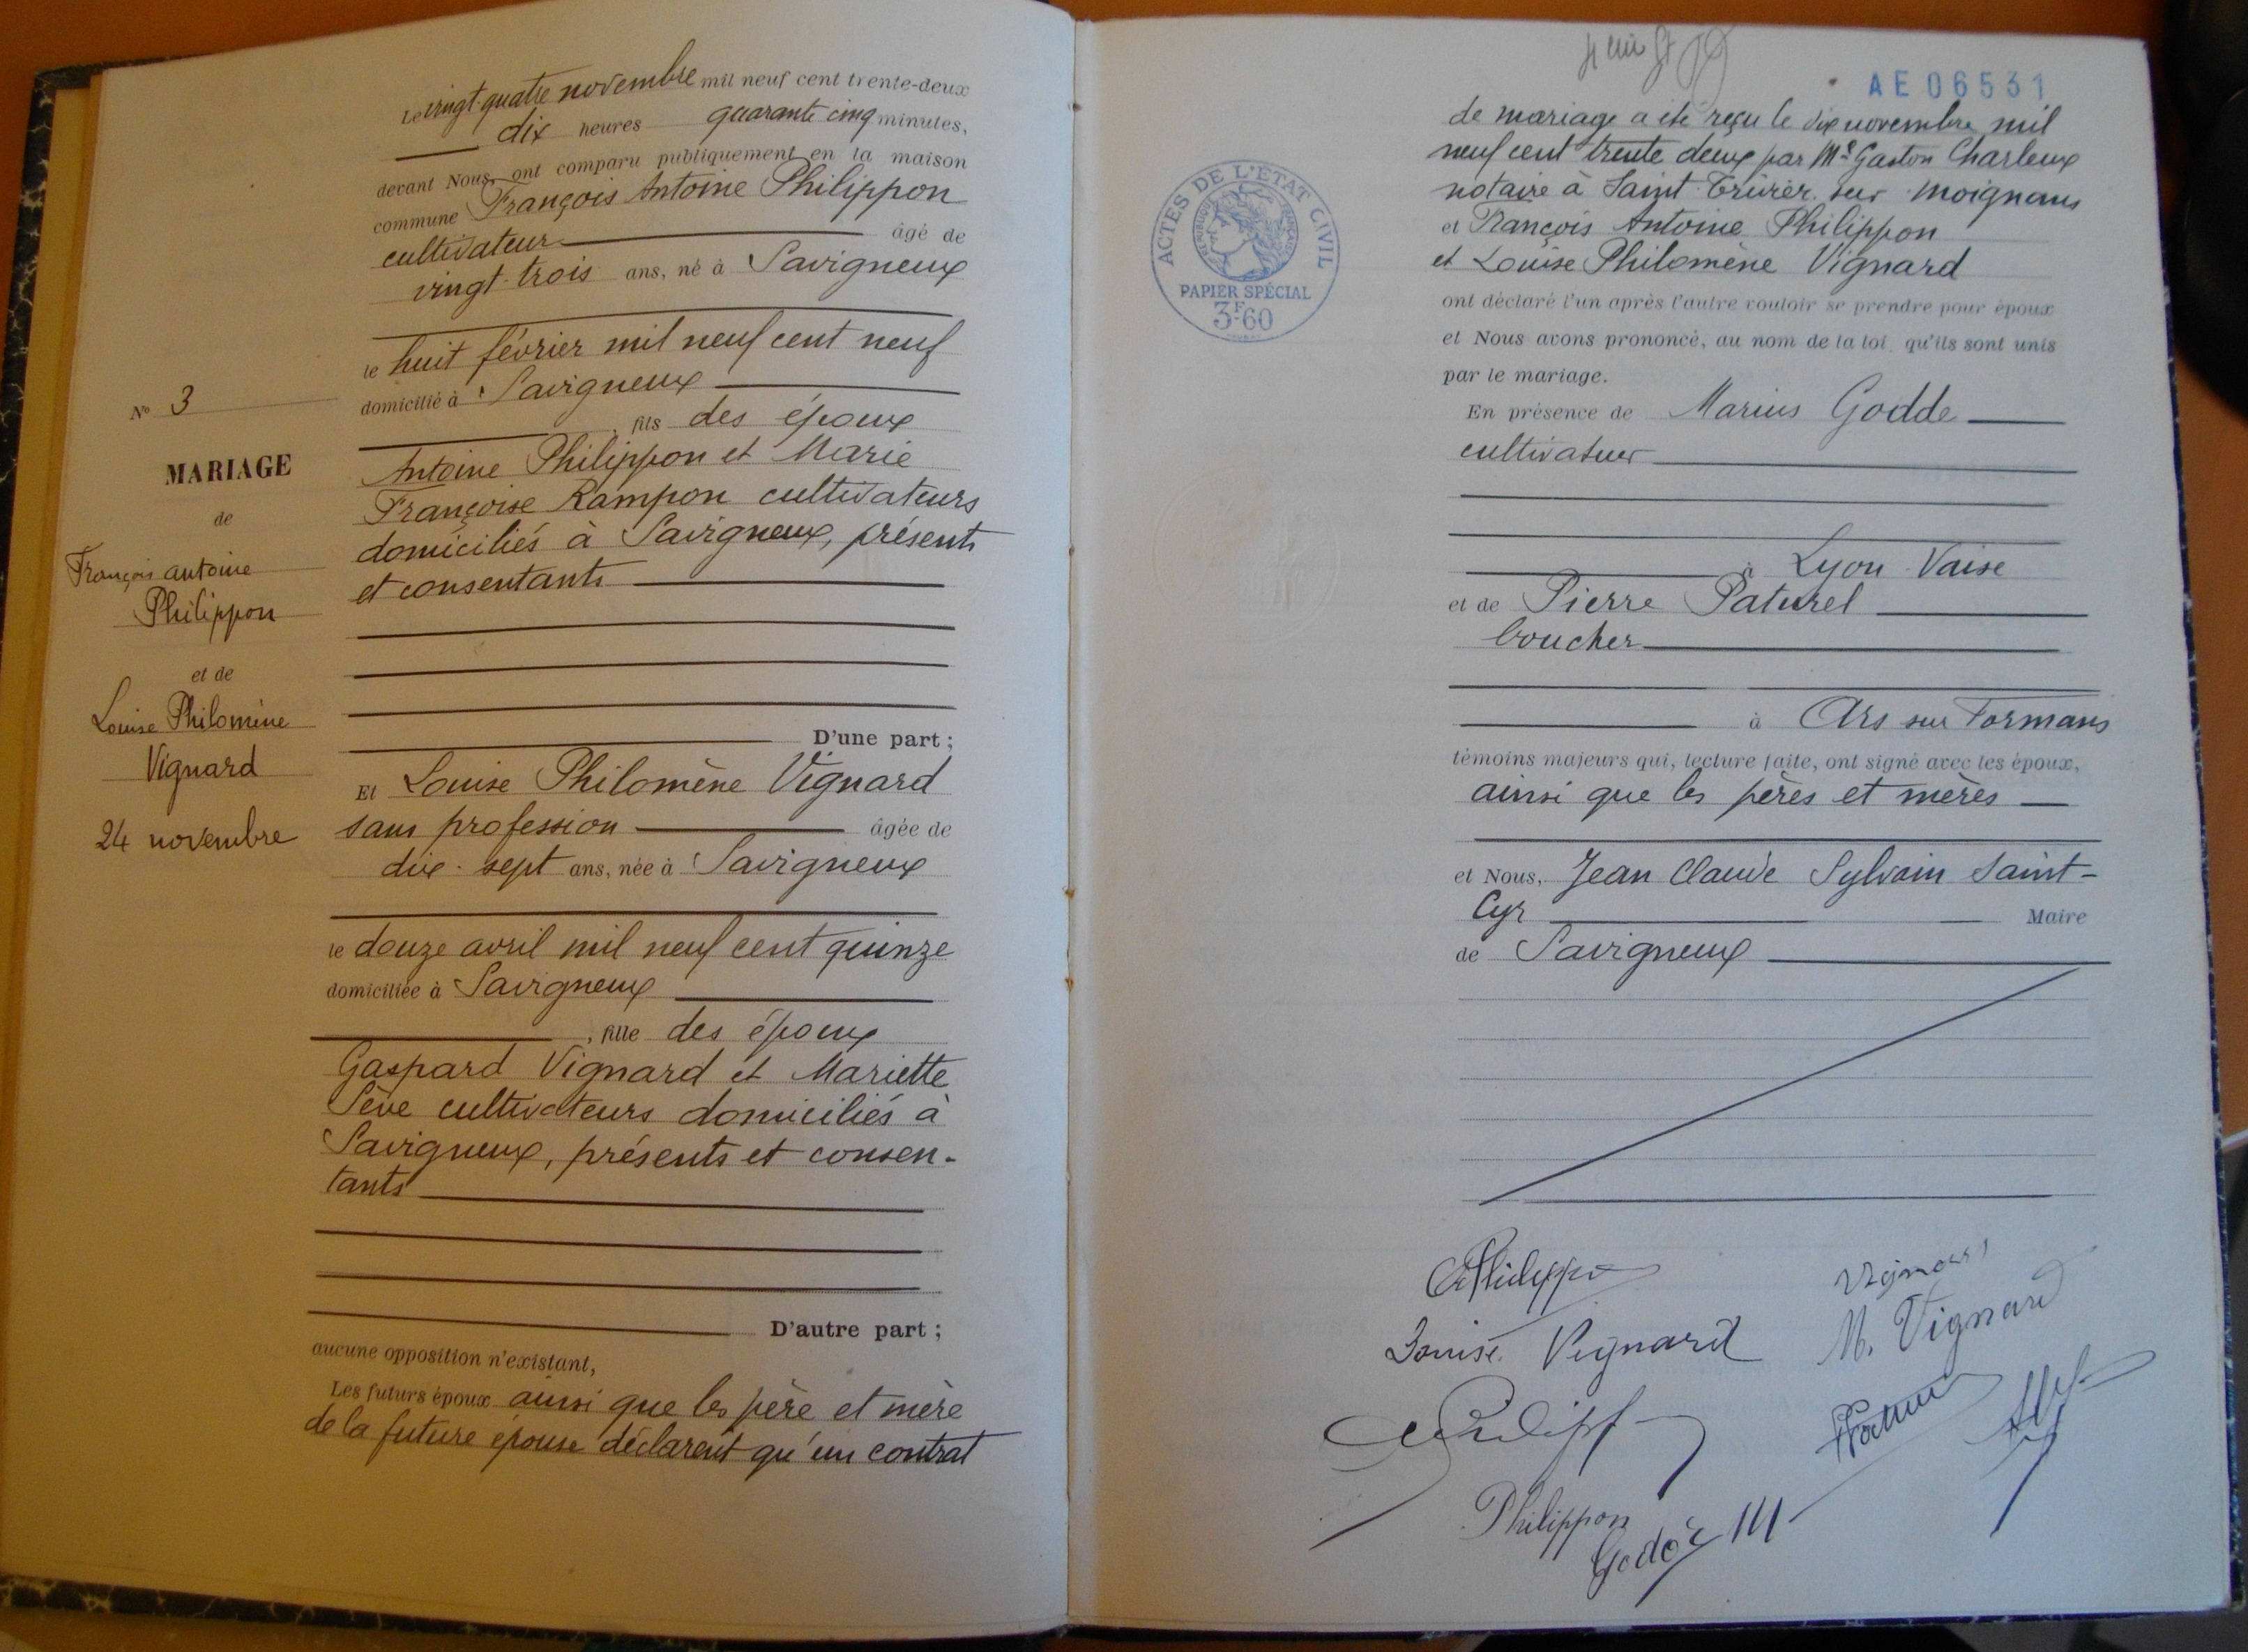 Le vingt-quatre novembre mil neuf cent trente-deux
dix heures quarante cinq minutes,
devant Nous, ont comparu publiquement en la maison
commune François Antoine Philippon
cultivateur âgé de
vingt-trois ans, né à Savigneux
le huit février mil neuf cent neuf
domicilié à Savigneux
, fils des époux
Antoine Philippon et Marie
Françoise Rampon cultivateurs
domiciliés à Savigneux, présents
et consentants
D'une part ;
Et Louise Philomène Vignard
sans profession âgée de
dix-sept ans, née à Savigneux
le douze avril mil neuf cent quinze
domiciliée à Savigneux
, fille des époux
Gaspard Vignard et Mariette
Sève cultivateurs domiciliés à
Savigneux, présents et consen-
tants
D'autre part ;
aucune opposition n'existant,
Les futurs époux ainsi que les père et mère
de la future épouse déclarent qu'un contrat
N° 3
MARIAGE
de
François Antoine
Philippon
et de
Louise Philomène
Vignard
24 novembre
AE 06531
de mariage a été reçu le dix novembre mil
neuf cent trente deux par Me Gaston Charleux
notaire à Saint-Trivier sur Moignans
et François Antoine Philippon
et Louise Philomène Vignard
ont déclaré l'un après l'autre vouloir se prendre pour époux
et Nous avons prononcé, au nom de la loi, qu'ils sont unis
par le mariage.
En présence de Marius Godde
cultivatuer
à Lyon Vaise
et de Pierre Paturel
boucher
à Ars sur Formans
témoins majeurs qui, lecture faite, ont signé avec les époux,
ainsi que les pères et mères
et Nous, Jean Claude Sylvain Saint-
Cyr Maire
de Savigneux
ACTES DE L'ÉTAT CIVIL
RÉPUBLIQUE FRANÇAISE
PAPIER SPÉCIAL
3F60
Louise Vignard
M. Vignard
Philippon